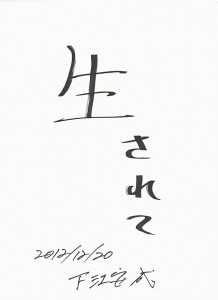 生されて
2012/12/20
下江宏武